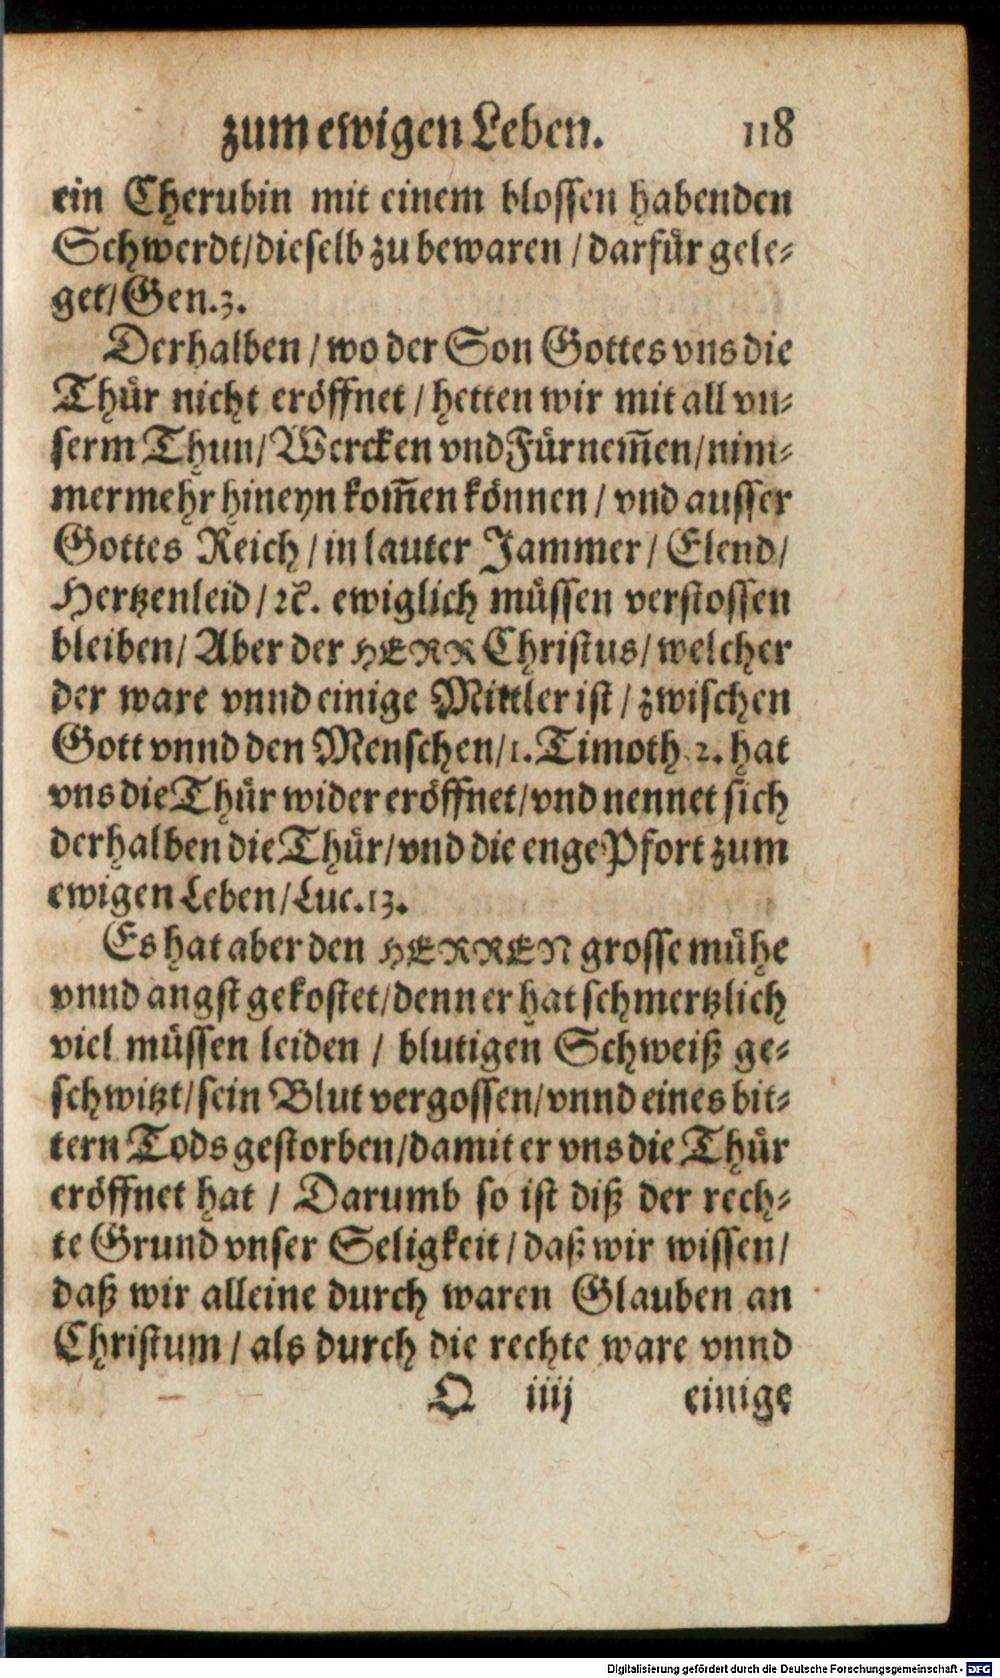 zum ewigen Leben. 118
ein Cherubin mit einem blossen habenden
Schwerdt/dieselb zu bewaren / darfür gele-
get/ Gen.3.
Derhalben / wo der Son Gottes vns die
Thür nicht eröffnet / hetten wir mit all vn-
serm Thun/ Wercken vnd Fürnem̃en/nim-
mermehr hineyn kom̃en können / vnd ausser
Gottes Reich / in lauter Jammer/ Elend/
Hertzenleid / ꝛc. ewiglich müssen verstossen
bleiben/ Aber der HERR Christus/ welcher
der ware vnnd einige Mittler ist / zwischen
Gott vnnd den Menschen/1. Timoth. 2. hat
vns die Thür wider eröffnet/vnd nennet sich
derhalben die Thür/vnd die enge Pfort zum
ewigen Leben/Luc.13.
Es hat aber den HERREN grosse mühe
vnnd angst gekostet/denn er hat schmertzlich
viel müssen leiden / blutigen Schweiß ge-
schwitzt/sein Blut vergossen/vnnd eines bit-
tern Tods gestorben/damit er vns die Thür
eröffnet hat / Darumb so ist diß der rech-
te Grund vnser Seligkeit / daß wir wissen/
daß wir alleine durch waren Glauben an
Christum / als durch die rechte ware vnnd
Q iiij einige
Digitalisierung gefördert durch die Deutsche Forschungsgemeinschaft - DFG